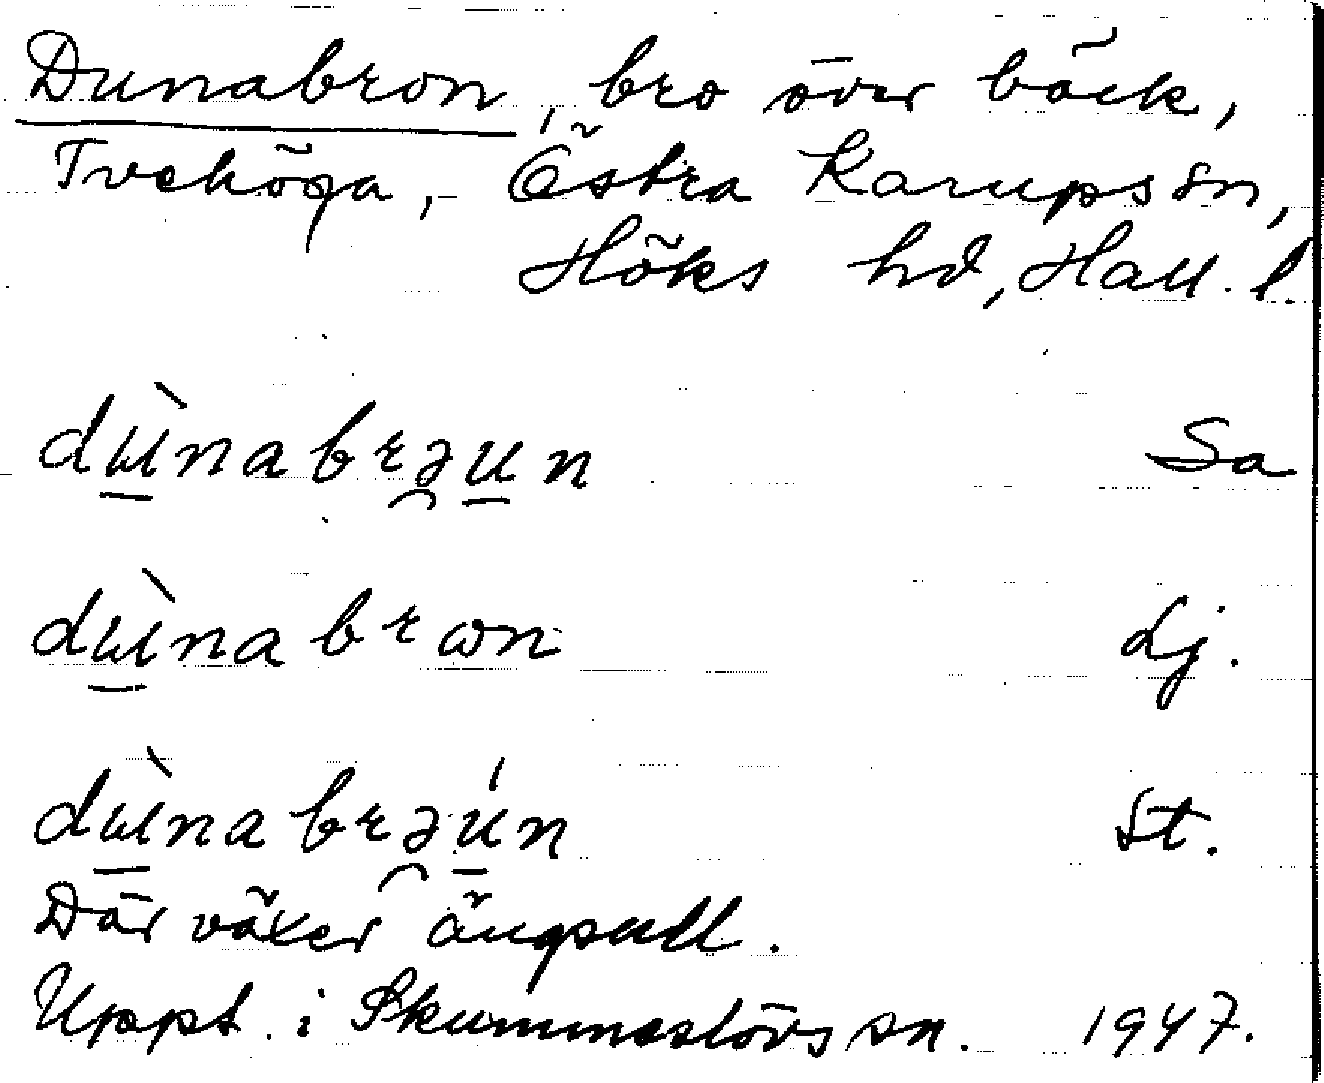 Dunabron, bro över bäck,
Tvehöga, Östra Karups sn,
Höks hd, Hall. l.
dùnabrəun Sa
dùnabrωn Lj.
dùnabrəún St.
Där växer ängsull.
Uppt. i Skummeslövs sn. 1947.